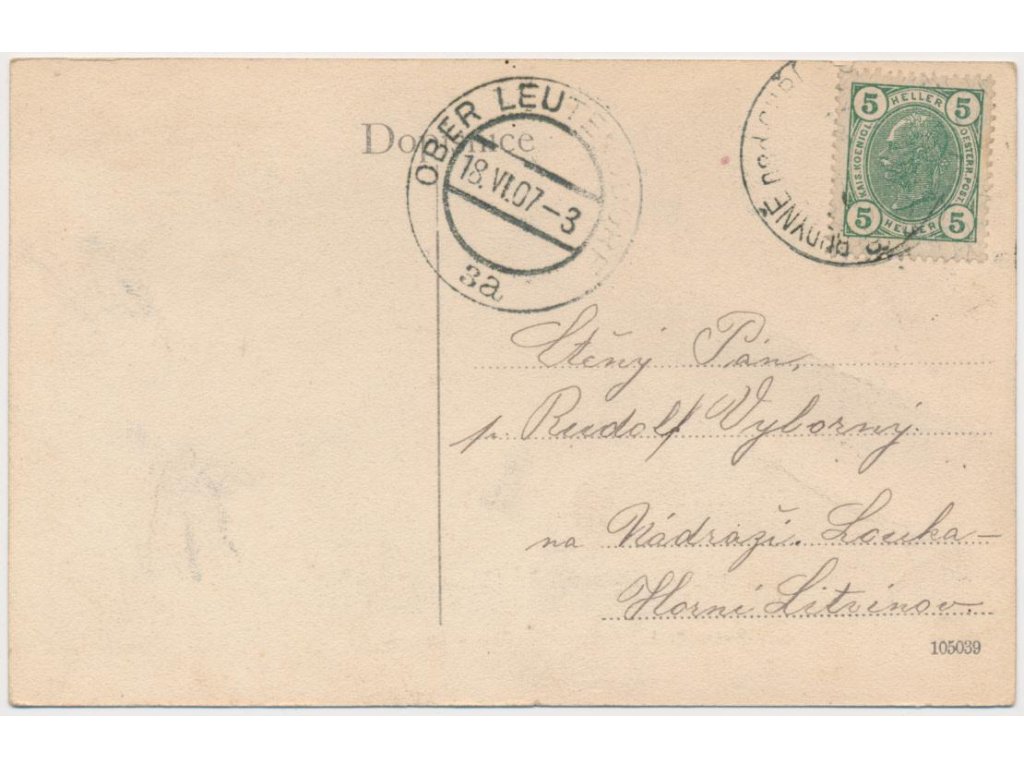 Dopisnice
OBER LEUTENSDORF
18. VI. 07-3
3a
BUDYNĚ nad
5 HELLER 5
KAIS. KOENIGL.
OESTERR. POST
5 HELLER 5
Ctěný Pán,
p. Rudolf Vyborný.
na Nádraží. Louka-
Horní Litvínov.
105039